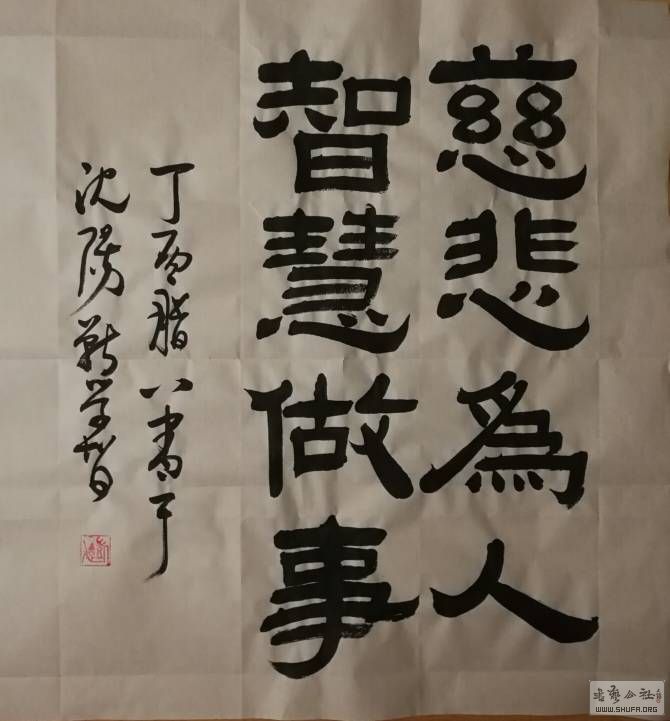 慈悲為人
智慧做事
丁酉腊八書于
沈陽
書藝公社
WWW.SHUFA.ORG